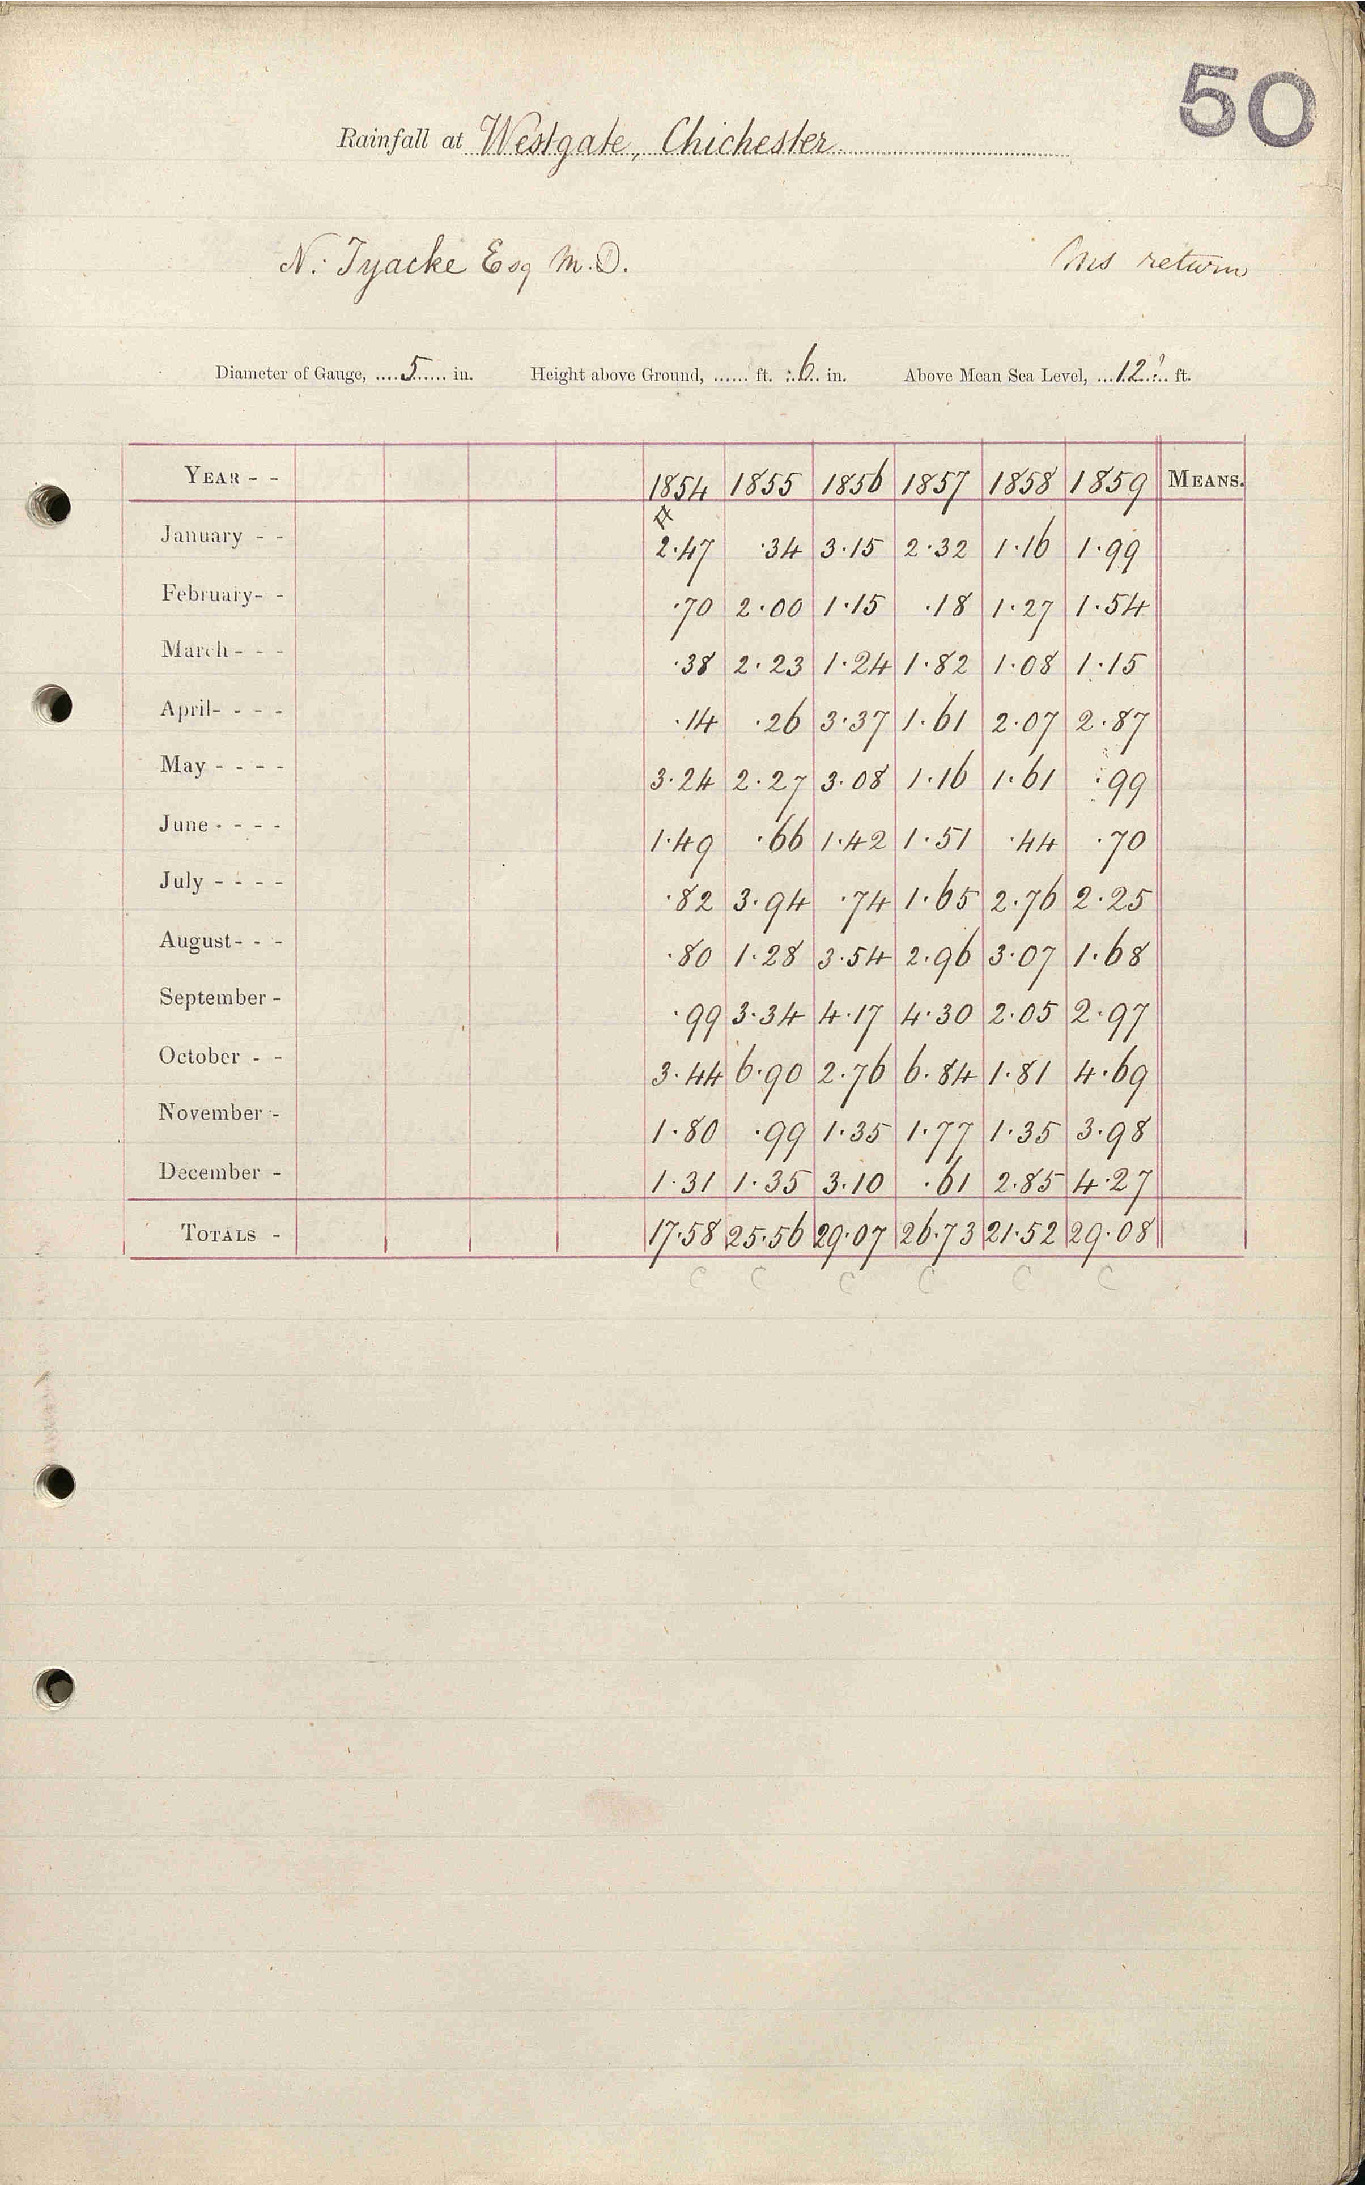 50
Rainfall at Westgate, Chichester
N. Tyacke Esq M.D. Ms return
Diameter of Gauge, 5 in. Height above Ground, ft. 6 in. Above Mean Sea Level, 12 ft.
YEAR - - 1854 1855 1856 1857 1858 1859 MEANS.
January - - 2.47 .34 3.15 2.32 1.16 1.99
February - - .70 2.00 1.15 .18 1.27 1.54
March - - - .38 2.23 1.24 1.82 1.08 1.15
April - - - - .14 .26 3.37 1.61 2.07 2.87
May - - - - 3.24 2.27 3.08 1.16 1.61 .99
June - - - - 1.49 .66 1.42 1.51 .44 .70
July - - - - .82 3.94 .74 1.65 2.76 2.25
August - - - .80 1.28 3.54 2.96 3.07 1.68
September - .99 3.34 4.17 4.30 2.05 2.97
October - - 3.44 6.90 2.76 6.84 1.81 4.69
November - 1.80 .99 1.35 1.77 1.35 3.98
December - 1.31 1.35 3.10 .61 2.85 4.27
TOTALS - 17.58 25.56 29.07 26.73 21.52 29.08
C C C C C C